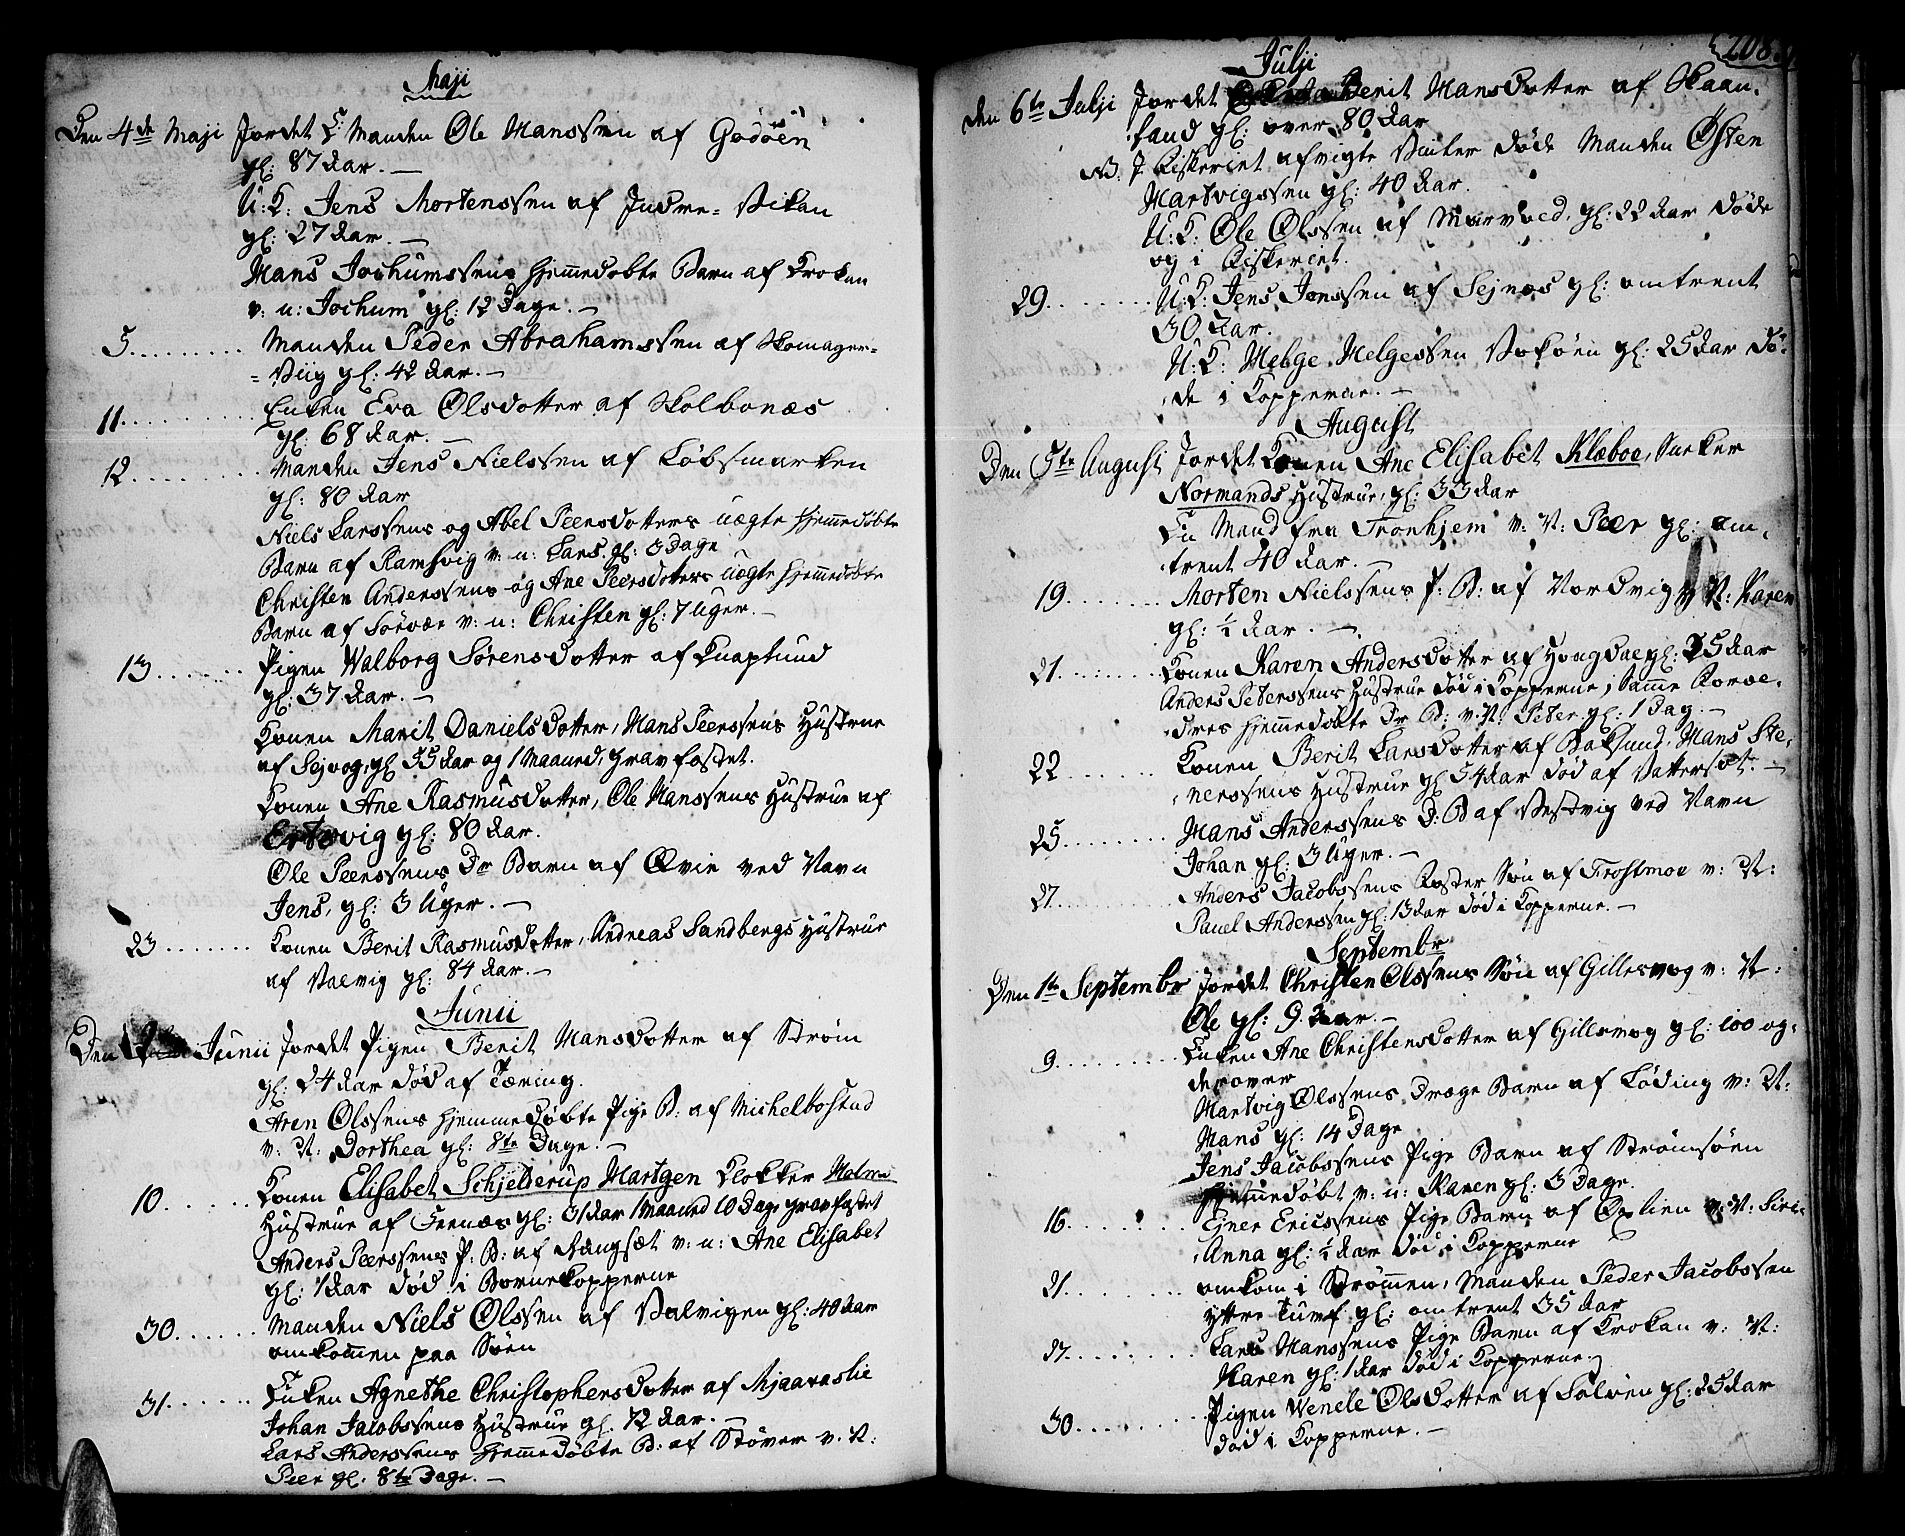 Maji
Den 4de Maji Jordet Manden Ole Hanssen af Godöen
gl: 87 Aar. —
U:K: Jens Mortenssen af Indre= Vikan
gl: 27 Aar. —
Hans Jochumssens hjemmedöbte Barn af Krokan
v: n: Jochum gl: 12 Dage. —
5. Manden Peder Abrahamssen af Skomager=
=Viig gl: 42 Aar. —
11. Enken Eva Olsdotter af Skolbonæs
gl: 68 Aar. —
12. Manden Jens Nielssen af Löbsmarken
gl: 80 Aar
Niels Larssens og Abel Peersdotters uægte hjemmedöbte
Barn af Ramsvig v: n: Lars. gl: 3 Dage
Christen Anderssens og Ane Peersdotters uægte hjemmedöbte
Barn af Sörvær v: n: Christen gl: 7 Uger. —
13. Pigen Walborg Sörensdotter af Knaplund
gl: 37 Aar. —
Konen Marit Danielsdotter, Hans Peerssens Hustrue
af Sejvog, gl 55 Aar og 1 Maaned, Gravfæstet.
Konen Ane Rasmusdotter, Ole Hanssens Hustrue af
Ertsvig gl: 80 Aar.
Ole Peerssens Dr Barn af Qvie ved Navn
Jens, gl: 3 Uger. —
23. Konen Berit Rasmusdotter, Andreas Sandbergs Hustrue
af Valvig gl: 84 Aar. —
Junii
Den Junii Jordet Pigen Berit Hansdotter af Ström
gl: 24 Aar död af Tæring.
Aren Olssens hjemmedöbte Pige B: af Mickelbostad
v: N: Dorthea gl: 8te Dage. —
10. Konen Elisabet Schjelderup Hartgen Klokker Holms
Hustrue af Fernæs gl: 31 Aar 1 Maaned 10 Dage gravfæstet
Anders Peerssens P: B: af v: n: Ane Elisabet
gl: 1 Aar död i Börnekopperne
30. Manden Niels Olssen af Valvigen gl: 40 Aar
omkommen paa Söen
31. Enken Agnethe Christophersdotter af Mjaavaslie
Johan Jacobssens Hustrue gl. 72 Aar. —
Lars Anderssens hjemmedöbte B: af Stöver v: N:
Peer gl. 8te Dage. —
208.
Julji
Den 6te Julji Jordet Berit Hansdotter af Skaan,
land gl: over 80 Aar
NB: I Fiskeriet afvigte Vinter döde Manden Østen
Hartvigssen gl: 40 Aar.
U:K: Ole Olssen af Marvold, gl: 22 Aar döde
og i Fiskeriet.
29. U:K: Jens Jenssen af Sejnæs gl: omtrent
30 Aar.
U:K: Helge Helgessen Voköen gl: 25 Aar dö,
,de i Kopperne. —
August
Den 5te Augusti Jordet Konen Ane Elisabet Klæboe, Sneker
Normands Hustrue, gl: 33 Aar
En Mand fra Tronhjem v: N: Peer gl: om,
,trent 40 Aar. —
19. Morten Nielssens P: B: af Nordvig v: N: Karen
gl: ½ Aar. —
21. Konen Karen Andersdotter af gl: 35 Aar
Anders Peterssens Hustrue död i Kopperne, Samme Foræl,
,dres hjemmedöbte Dr B: v: N: Peter gl: 1 Dag. —
22. Konen Berit Larsdotter af Baksund, Hans Ste,
,nerssens Hustrue gl 54 Aar död af Vattersot. —
25. Hans Anderssens D: B af Vestvig ved Navn
Johan gl: 3 Uger. —
27. Anders Jacobssens Foster Sön af Trostmoe v: N:
Pauel Anderssen gl: 13 Aar död i Kopperne. —
Septembr
Den 1te Septembr Jordet Christen Olssens Sön af Gillesvog v: N:
Ole gl: 9 Aar. —
9. Enken Ane Christensdotter af Gillesvog gl: 100 og,
derover
Hartvig Olssens Drenge Barn af Löding v: N:
Hans gl: 14 Dage
Jens Jacobssens Pige Barn af Strömsöen
hjemmedöbt v: n: Karen gl: 3 Dage.
16. Ejner Ericssens Pige Barn af Oxlien v: N: Siri,
,Anna gl: ½ Aar död i Kopperne
21. omkom i Strömmen, Manden Peder Jacobssen
yttre Tuuf gl: omtrent 35 Aar
27. Lars Hanssens Pige Barn af Krokan v: N:
Karen gl: 1 Aar död i Kopperne.
30. Pigen Wenele Olsdotter af Solöen gl: 25 Aar
död i Kopperne. —